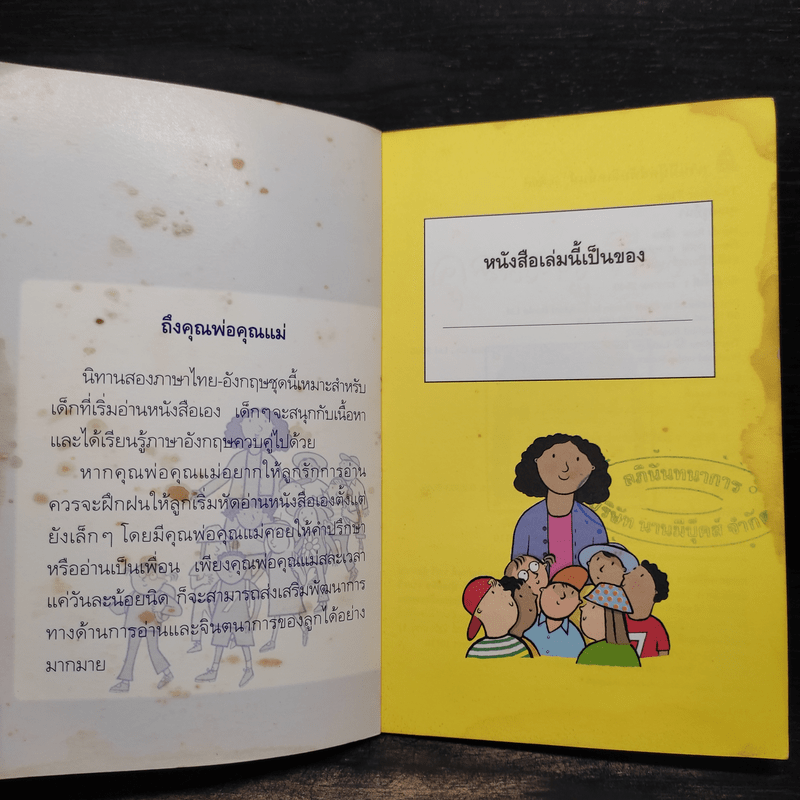 ถึงคุณพ่อคุณแม่
นิทานสองภาษาไทย-อังกฤษชุดนี้เหมาะสำหรับ
เด็กที่เริ่มอ่านหนังสือเอง เด็กๆจะสนุกกับเนื้อหา
และได้เรียนรู้ภาษาอังกฤษควบคู่ไปด้วย
หากคุณพ่อคุณแม่อยากให้ลูกรักการอ่าน
ควรจะฝึกฝนให้ลูกเริ่มหัดอ่านหนังสือเองตั้งแต่
ยังเล็กๆ โดยมีคุณพ่อคุณแม่คอยให้คำปรึกษา
หรืออ่านเป็นเพื่อน เพียงคุณพ่อคุณแม่สละเวลา
แค่วันละน้อยนิด ก็จะสามารถส่งเสริมพัฒนาการ
ทางด้านการอ่านและจินตนาการของลูกได้อย่าง
มากมาย
หนังสือเล่มนี้เป็นของ
อภินันทนาการ
บริษัท นานมีบุ๊คส์ จำกัด